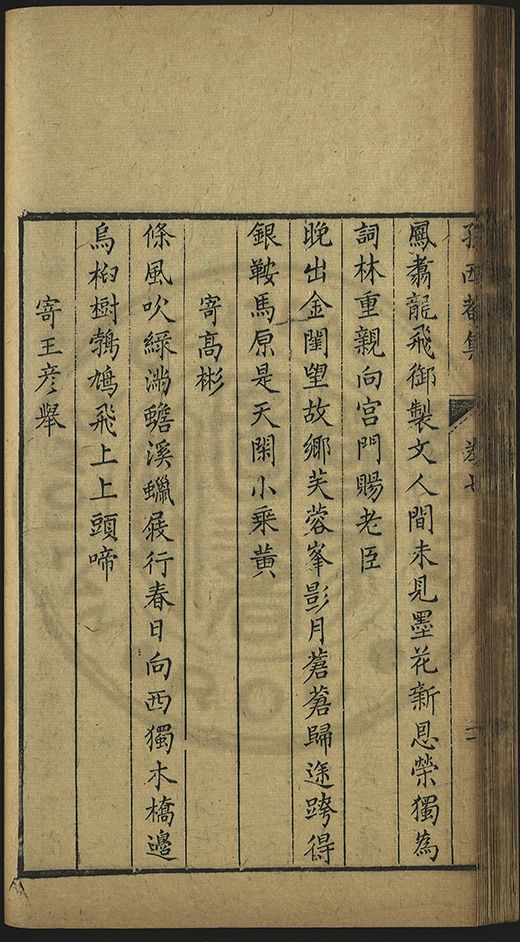 孫西菴集 卷七 二
鳳翥龍飛御製文人間未見墨花新恩榮獨為
詞林重親向宮門賜老臣
晚出金閨望故鄉芙蓉峯影月蒼蒼歸途跨得
銀鞍馬原是天閑小乘黄
寄高彬
條風吹綠滿蟾溪蠟屐行春日向西獨木橋邊
烏桕樹鵓鳩飛上上頭啼
寄王彦舉